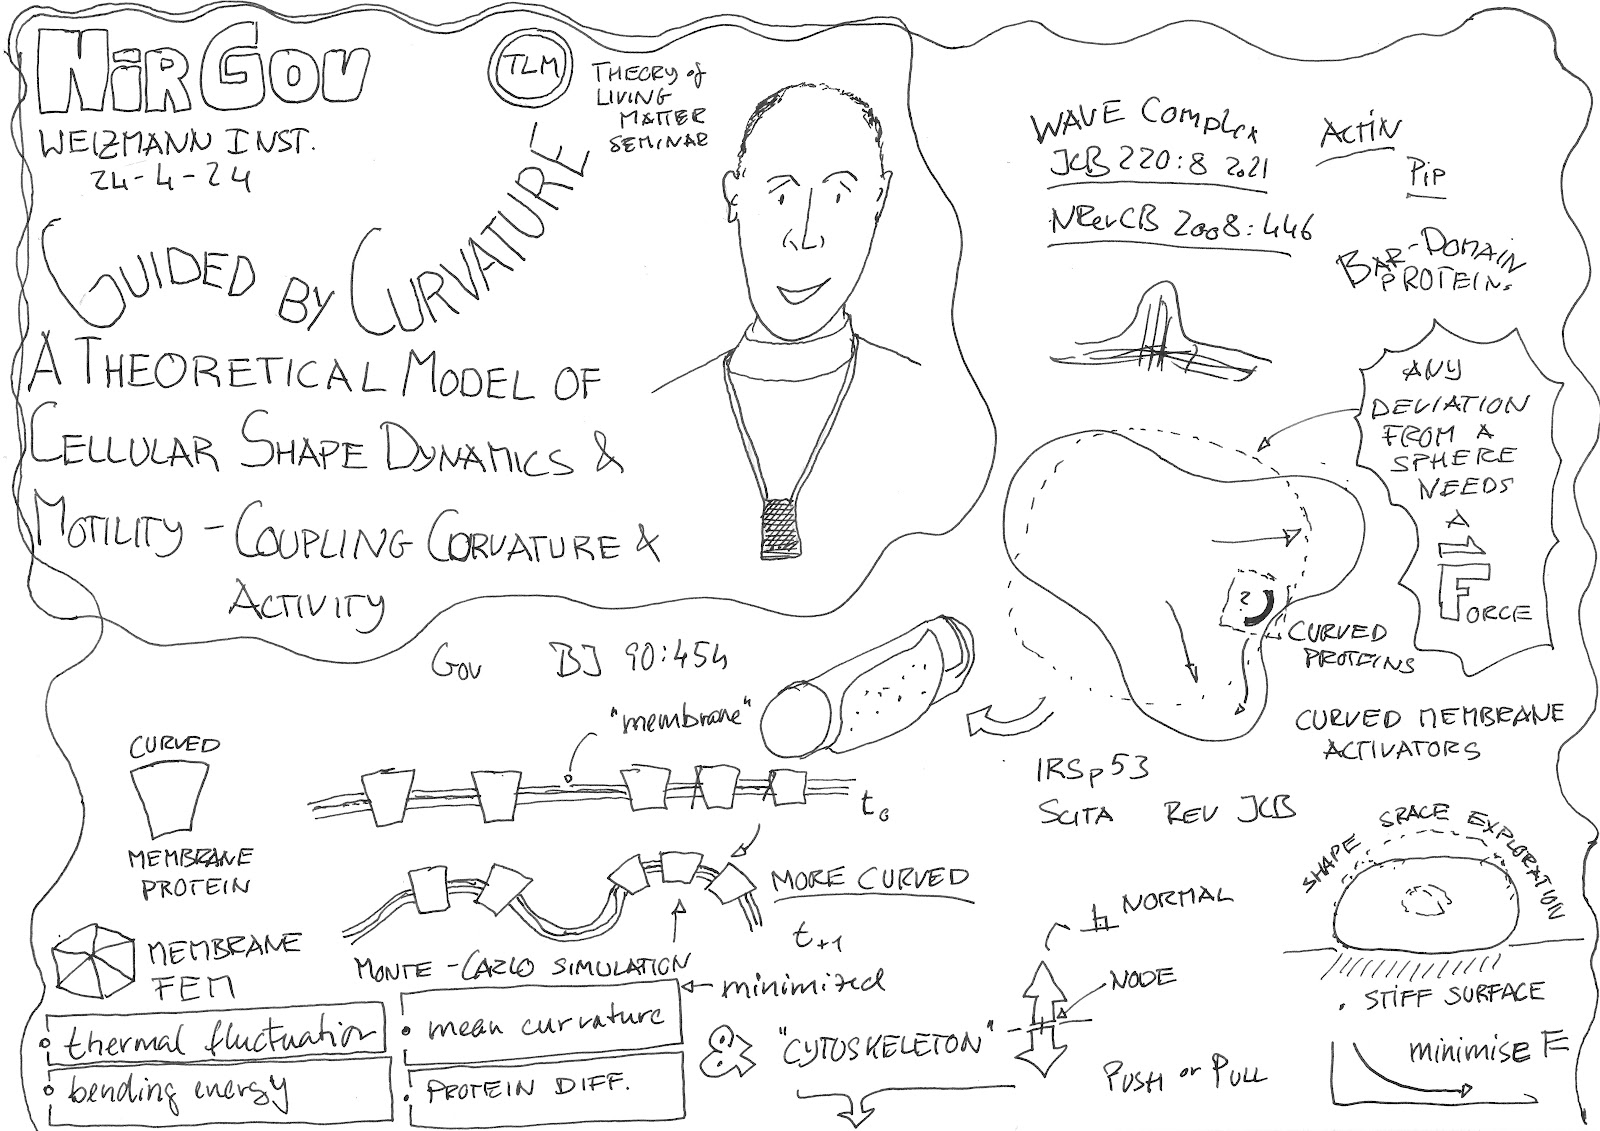 NiR GOV
WEIZMANN INST.
24-4-24
TLM
THEORY of
LIVING
MATTER
SEMINAR
GUIDED BY CURVATURE
A THEORETICAL MODEL OF
CELLULAR SHAPE DYNAMICS &
MOTILITY - COUPLING CORVATURE &
ACTIVITY
WAVE Complex
JCB 220:8 2021
NRevCB 2008:446
ACTIN
PiP
BAR-DOMAIN
PROTEINs
ANY
DEVIATION
FROM A
SPHERE
NEEDS
A
FORCE
?
CURVED
PROTEINS
CURVED MEMBRANE
ACTIVATORS
GOV BJ 90:454
"membrane"
CURVED
MEMBRANE
PROTEIN
t0
MORE CURVED
t+1
IRSp53
SCITA REV JCB
SHAPE SPACE EXPLORATION
STIFF SURFACE
minimise E
MEMBRANE
FEM
MONTE-CARLO SIMULATION
minimized
thermal fluctuation
bending energy
mean curvature
PROTEIN DIFF.
& "CYTOSKELETON"
NORMAL
NODE
PUSH or PULL